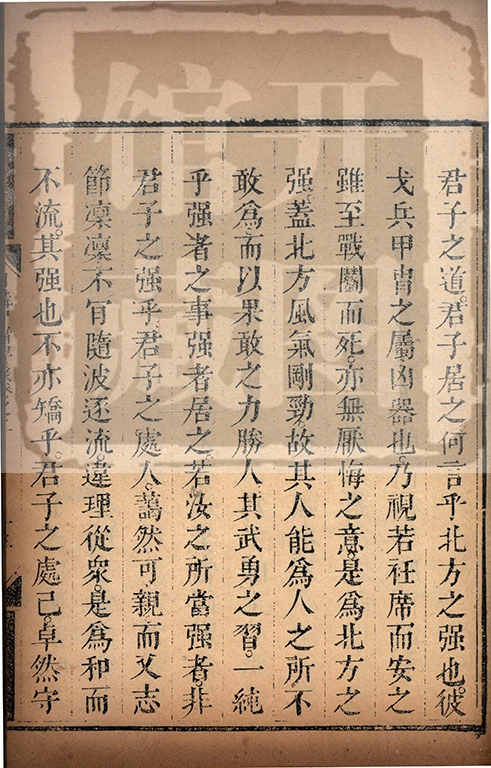 君子之道。君子居之。何言乎北方之强也。彼
戈兵甲胄之屬凶器也乃視若衽席而安之
雖至戰鬭而死。亦無厭悔之意。是爲北方之
强。蓋北方風氣剛勁。故其人能爲人之所不
敢爲。而以果敢之力勝人其武勇之習。一純
乎强者之事强者居之。若汝之所當强者。非
君子之强乎。君子之處人。藹然可親而又志
節凛凛不肎隨波逐流違理從衆是爲和而
不流。其强也不亦矯乎。君子之處己。卓然守